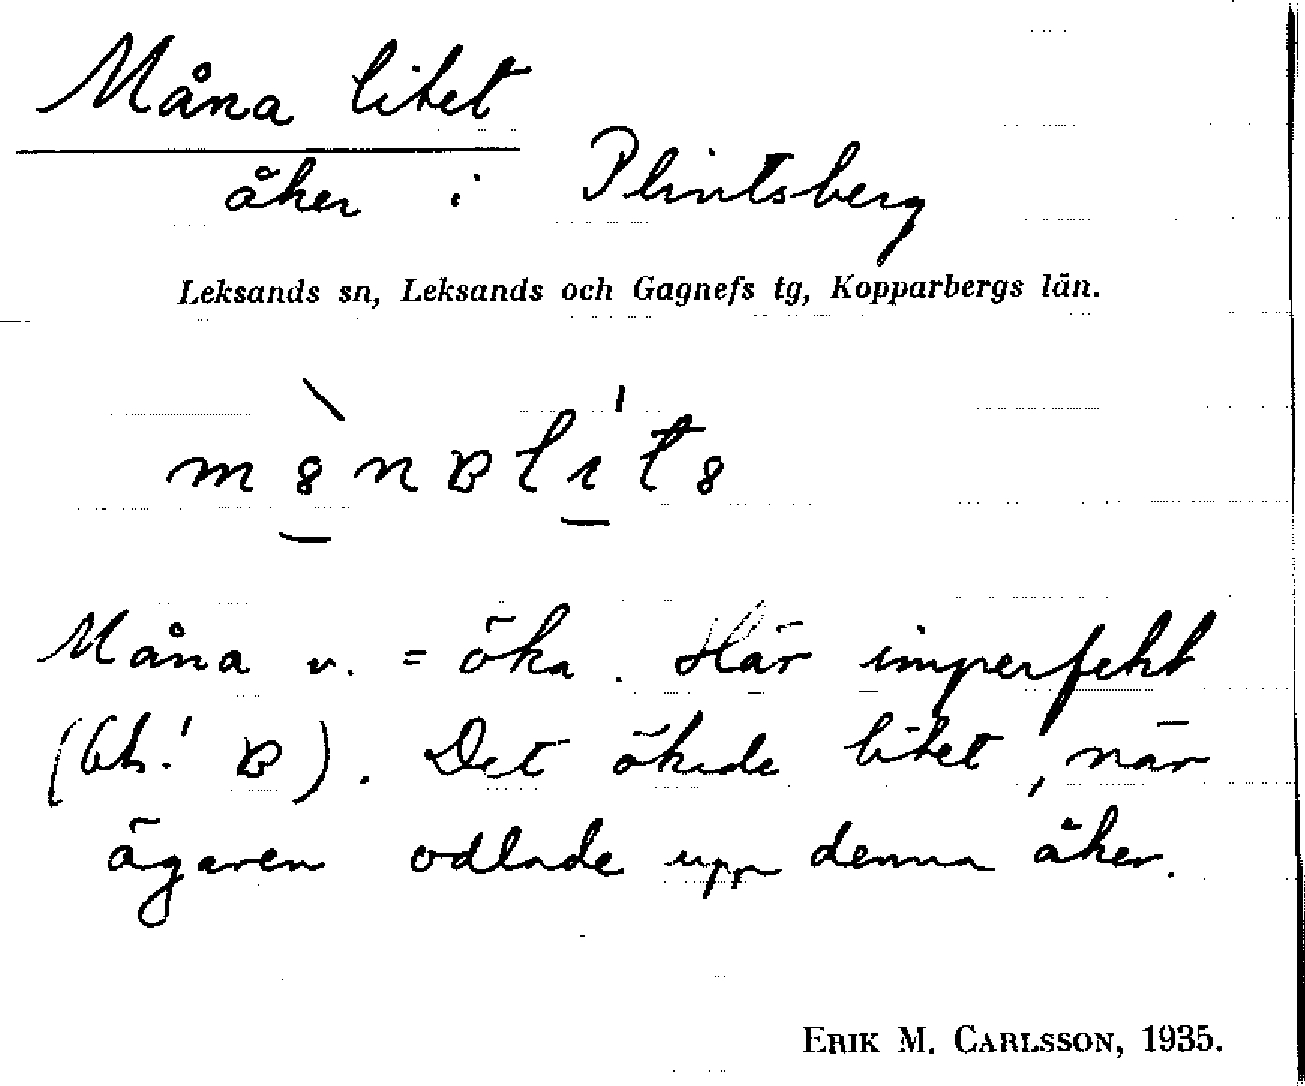 Måna litet
åker i Plintsberg
Leksands sn, Leksands och Gagnefs tg, Kopparbergs län.
Måna v. = öka. Här imperfekt
Det ökade litet, när
ägaren odlade upp denna åker.
ERIK M. CARLSSON, 1935.